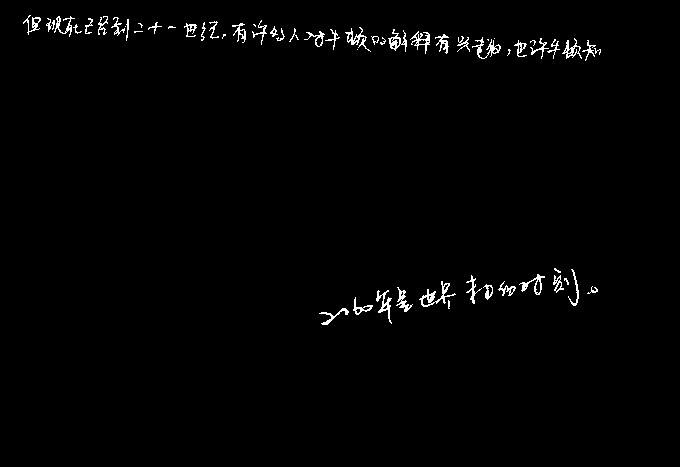 但现在已经到二十一世纪，有许多人对牛顿的解释有兴趣，也许牛顿知
2060年是世界末日的时刻。